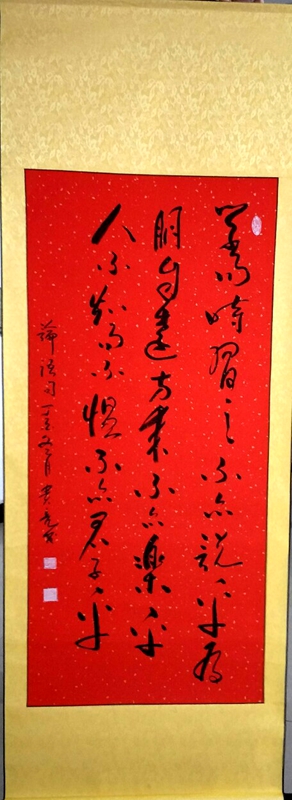 學而時習之不亦説乎有
朋自遠方來不亦樂乎
人不知而不愠不亦君子乎
論語句